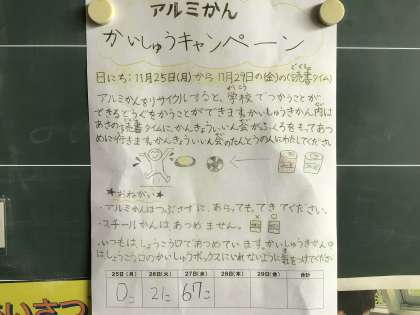 アルミかん
かいしゅうキャンペーン
日にち:11月25日(月)から11月29日の(金)の(読書タイム)
どくしょ
アルミかんをリサイクルすると、学校でつかうことが
がっこう
できるどうぐをかうことができます。かいしゅうきかん内は
ない
あさの読書タイムに、かんきょういいん会がふくろをもってあつ
めに行きます。かんきょういいん会のたんとうの人にわたしてください。
★おねがい★
・アルミかんはつぶさずに、あらって、もってきてください。
・スチールかんはあつめません。
・いつもはしょうこう口であつめています。かいしゅうきかん中
はしょうこう口のかいしゅうボックスにいれないように気をつけてください
25日(月) 26日(火) 27日(水) 28日(木) 29日(金) 合計
0こ 21こ 67こ
いさつ